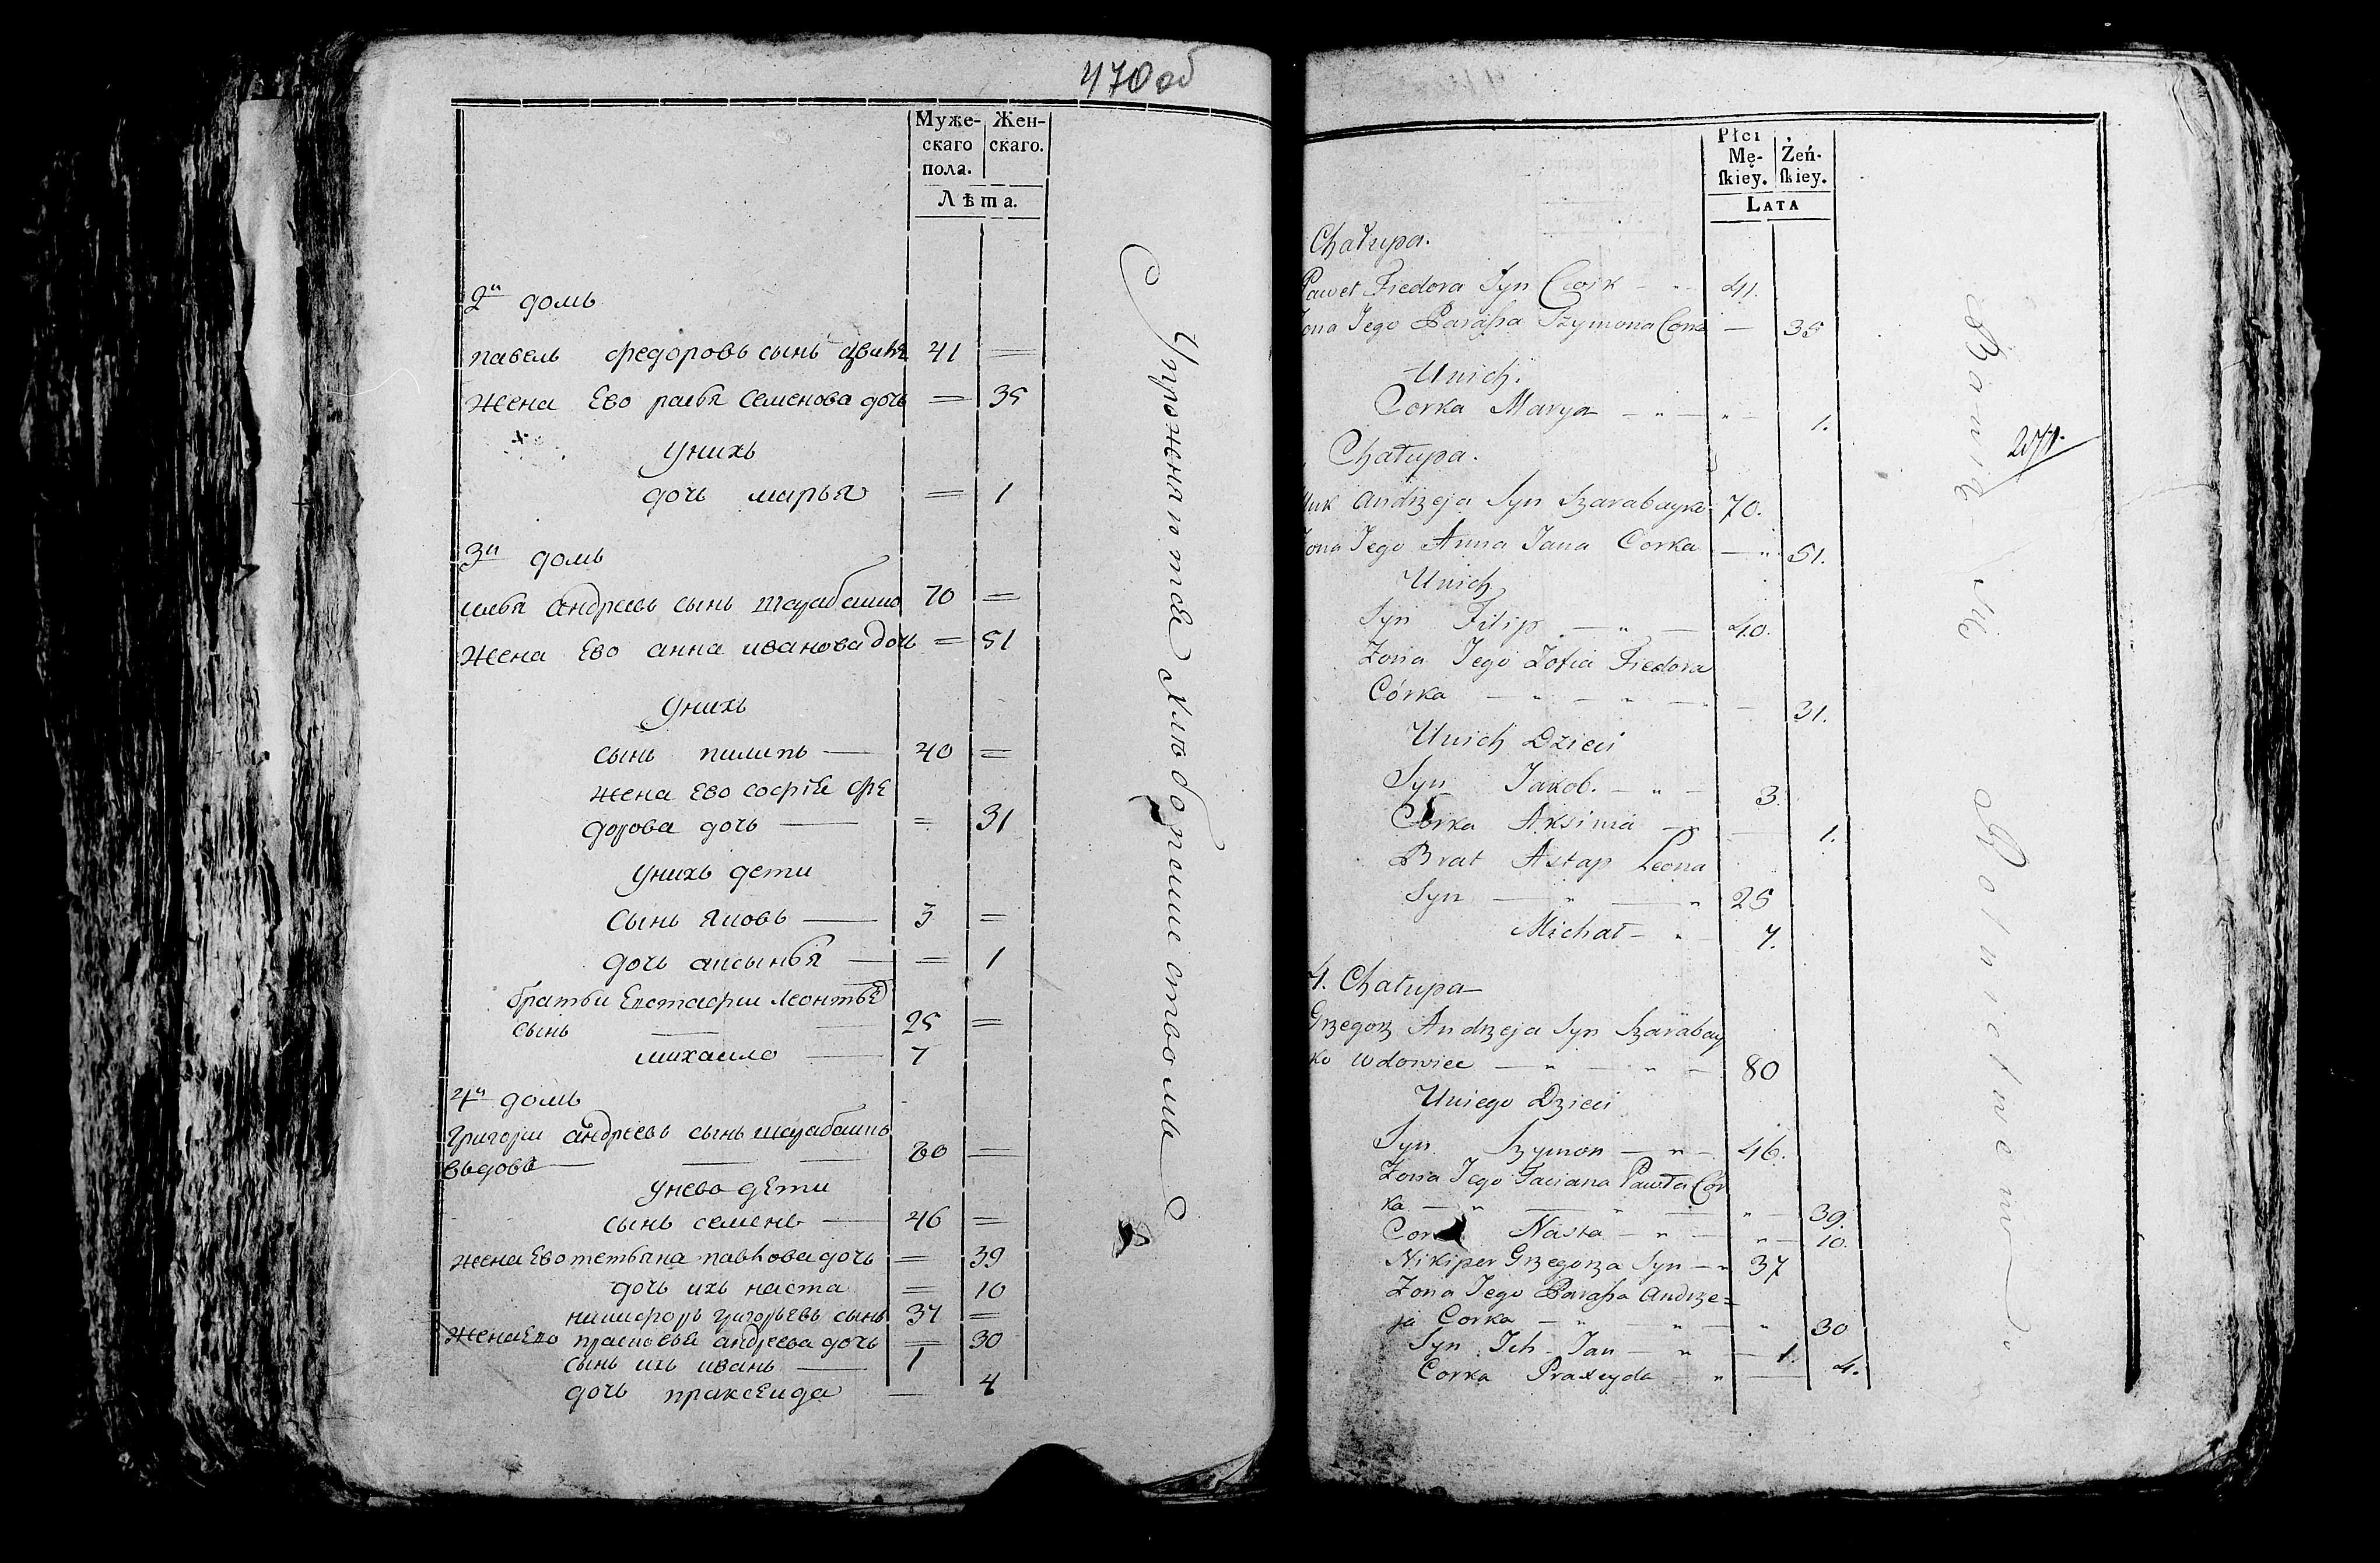 470 об
Муже-
скаго
пола.
Жен-
скаго.
Лѣта.
2й домъ
павелъ федоровъ сынъ цвикъ 41 =
жена Ево Семенова дочь = 35
унихъ
дочь марья = 1
3й домъ
андреевъ сынъ 70 =
жена Ево анна иванова дочь = 51
унихъ
сынъ пилипъ — 40 =
жена Ево софiя фе
дорова дочь — = 31
унихъ дети
сынъ яковъ — 3 =
дочь аксынья — = 1
братьи Евстафiи леонтьев
сынъ — 25 =
михаило — 7
4й домъ
григорiи андреевъ сынъ шарабаико
вдовъ — 80 =
унево дети
сынъ семенъ — 46 =
жена Ево тетьяна павлова дочь = 39
дочь ихъ наста = 10
никифоръ григорьевъ сынъ 37 =
жена Ево андреева дочь = 30
сынъ ихъ иванъ — 1
дочь праксеида — 4
Płci
Mę-
skiey.
Żeń-
skiey.
LATA
Chałupa.
Paweł Fiedora Syn Cwik — 41.
Jego Parasza Szymona Corka — 35
Unich.
Corka Marya — " — 1.
Chałupa.
Andrzeja Syn Szarabayko 70.
Jego Anna Jana Corka — " 51.
Unich
Syn Filip — " — 40.
Żona Jego Zofia Fiedora
Córka — " — " — 31.
Unich Dzieci
Syn Jakob. — " — 3.
Córka Aksinia — 1.
Brat Astap Leona
Syn — " — " 25
Michał — " — 7.
4. Chałupa
Grzegorz Andrzeja Syn Szarabay
ko Wdowiec — " — " — 80
Uniego Dzieci
Syn Szymon — " — 46.
Żona Jego Taciana Pawła Cor
ka — " — " — 39.
Corka Nasta — " — " — 10.
Nikiper Grzegorza Syn — " 37
Żona Jego Parasza Andrze=
ja Corka — " — " — " 30
Syn Ich Jan — " — 1.
Corka Praxeyda — " — 4.
271.